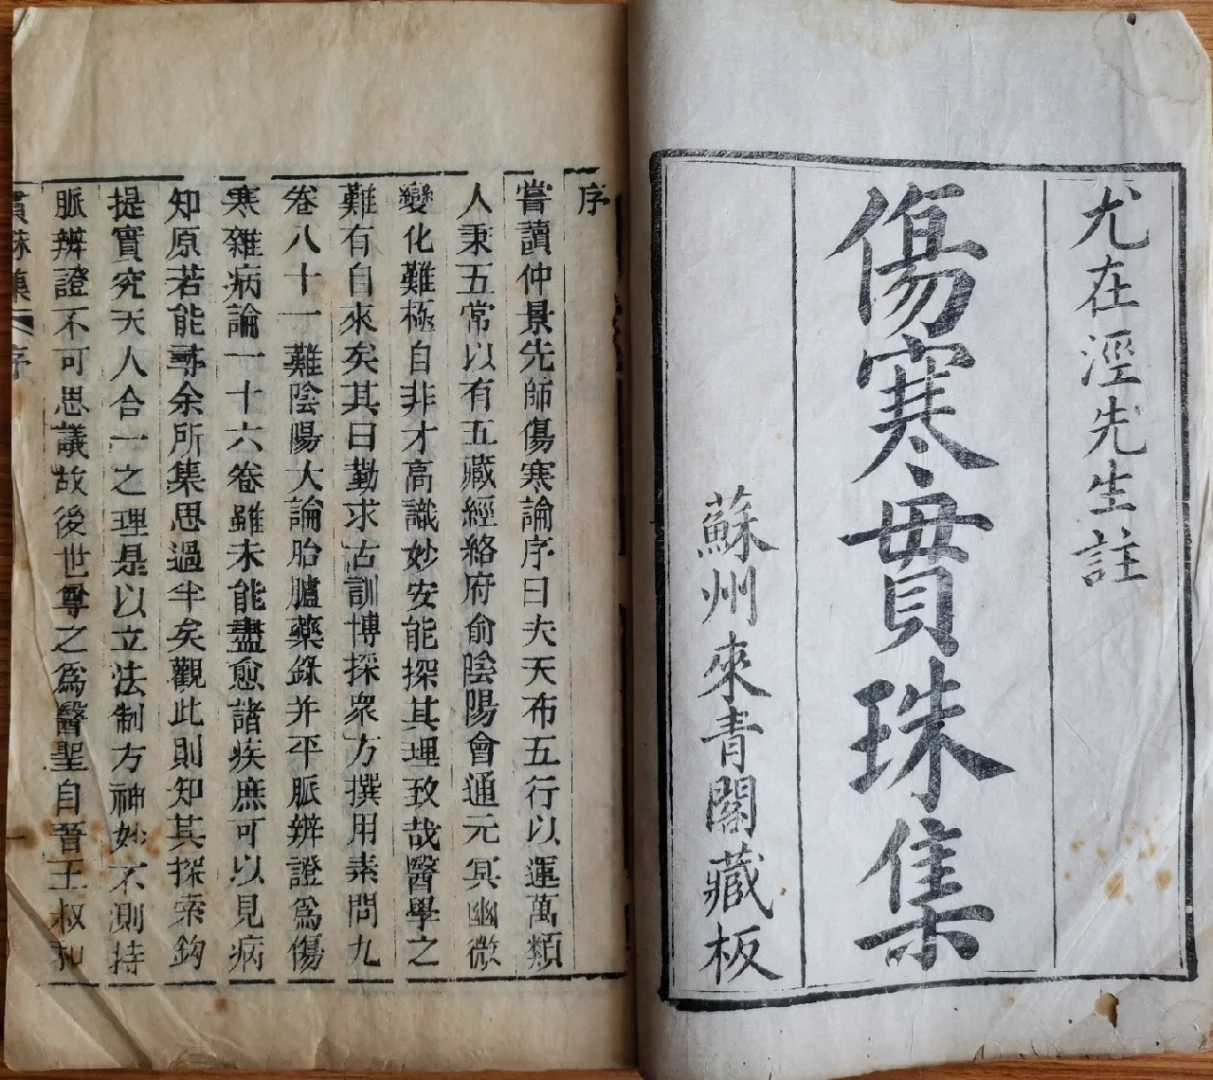 尤在涇先生註
傷寒貫珠集
蘇州來青閣藏板
序
嘗讀仲景先師傷寒論序曰夫天布五行以運萬類
人秉五常以有五藏經絡府俞陰陽會通元冥幽微
變化難極自非才高識妙安能探其理致哉醫學之
難有自來矣其曰勤求古訓博採衆方撰用素問九
卷八十一難陰陽大論胎臚藥錄并平脈辨證爲傷
寒雜病論一十六卷雖未能盡愈諸疾庶可以見病
知原若能尋余所集思過半矣觀此則知其探索鈎
提實究天人合一之理是以立法制方神妙不測持
脈辨證不可思議故後世尊之爲醫聖自晉王叔和
貫珠集 序